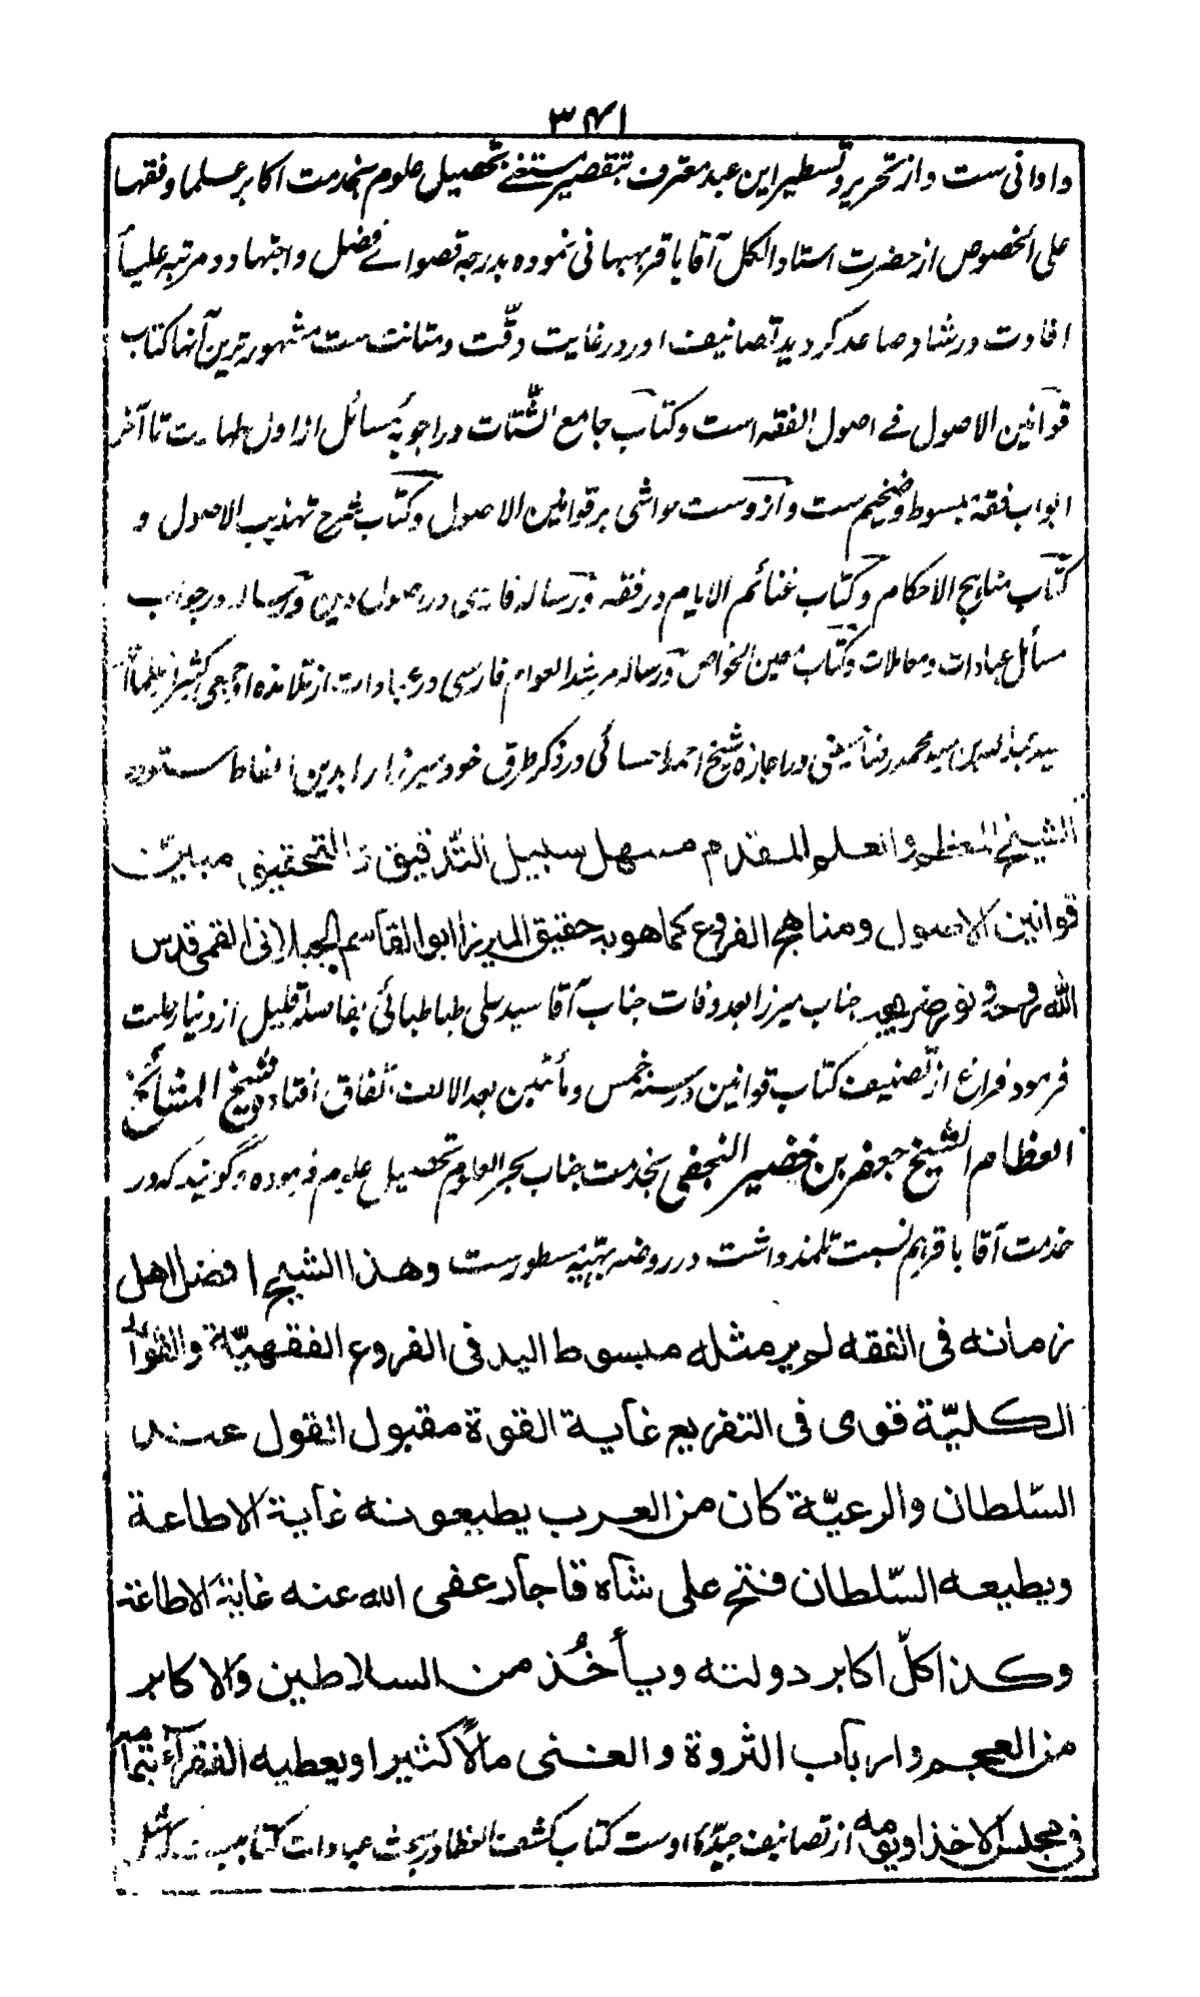 ۳۴۱
و ادانی ست و از تحریر و تسطیر این عبد معترف بتقصیر مستغنی تحصیل علوم بخدمت اکابر علما و فقها
علی الخصوص از حضرت استاد الکل آقا باقر بهبهانی نموده بدرجه قصوائے فضل و اجتهاد و مرتبه علیاً
افادت و رشاد صاعد گردید تصانیف او در غایت دقّت و متانت ست مشهورترین آنها کتاب
قوانین الاصول فے اصول الفقه است و کتاب جامع الشّتات در اجوبۀ مسائل از اول طهارت تا آخر
ابواب فقه مبسوط و ضخیم ست و از وست حواشی بر قوانین الاصول و کتاب شرح تهذیب الاصول و
کتاب مناهج الاحکام و کتاب غنائم الایام در فقه و رساله فارسی در اصول دین و رساله در جواب
مسائل عبادات و معاملات و کتاب معین الخواص و رساله مرشد العوام فارسی در عبادات از تلامذه او جمعی کثیر از علما
سید عبدالله بن سید محمد رضا حسینی در اجازه شیخ احمد احسائی در ذکر طرق خود میرزا را بدین الفاظ ستوده
الشیخ المعظم والعلم المقدم مسهل سبیل التّدقیق والتحقیق مبیّن
قوانین الاصول ومناهج الفروع کما هو به حقیق المیرزا ابوالقاسم الجیلانی القمی قدس
الله روحه و نور ضریحه جناب میرزا بعد وفات جناب آقا سید علی طباطبائی بفاصله قلیل از دنیا رحلت
فرمود فراغ از تصنیف کتاب قوانین در سنه خمس و مأتین بعد الالف اتفاق افتاد شیخ المشائخ
العظام الشیخ جعفر بن خضیر النجفی بخدمت جناب بحر العلوم تحصیل علوم فرموده و گویند که در
خدمت آقا باقر هم نسبت تلمذ داشت در روضه بهیّه مسطورست وهذا الشیخ افضل اهل
زمانه فی الفقه لم یر مثله مبسوط الید فی الفروع الفقهیّة والقواعد
الکلیّة قوی فی التفریع غایة القوة مقبول القول عند
السّلطان والرعیّة کان من العرب یطیعونه غایة الاطاعة
ویطیعه السّلطان فتح علی شاه قاجار عفی الله عنه غایة الاطاعة
وکذا کلّ اکابر دولته ویأخُذ من السلاطین والاکابر
من العجم وارباب الثروة والغنی مالاً کثیرا ویعطیه الفقرآء بتمامه
فی مجلس الاخذ او یومه از تصانیف جیّدۀ اوست کتاب کشف الغطا در بحث عبادات کتابیست که مثل